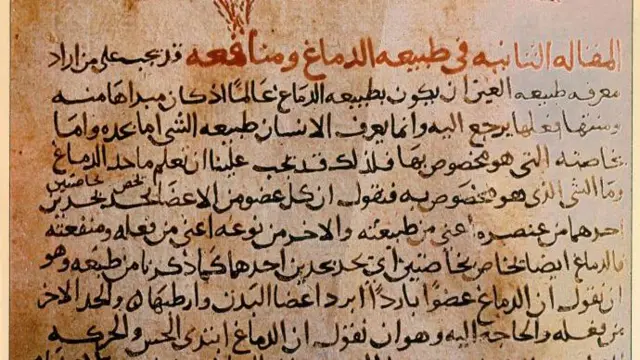 المقاله الثانيه في طبيعه الدماغ ومنافعه قد يجب على من اراد
معرفه طبيعه العين ان يكون بطبيعه الدماغ عالمًا اذ كان مبداها منه
ومنتهى فعلها يرجع اليه وانما يعرف الانسان طبيعه الشي اما بحده واما
بخاصته التي هو مخصوص بها فلذلك قد يجب علينا ان نعلم ما حد الدماغ
وما الشي الذي هو مخصوص به فنقول ان كل عضو من الاعضا يحد بحدين
يخص خاصتين
احدهما من عنصره اعني من طبيعته والاخر من نوعه اعني من فعله ومنفعته
فالدماغ ايضا بخاص بخاصتين اي يحد بحدين احدهما كما ذكرنا من طبعه وهو
ان نقول ان الدماغ عضوًا باردًا ابرد اعضا البدن وارطبها والحد الاخر
من فعله والحاجه اليه وهو ان نقول ان الدماغ ابتدى الحس والحركه